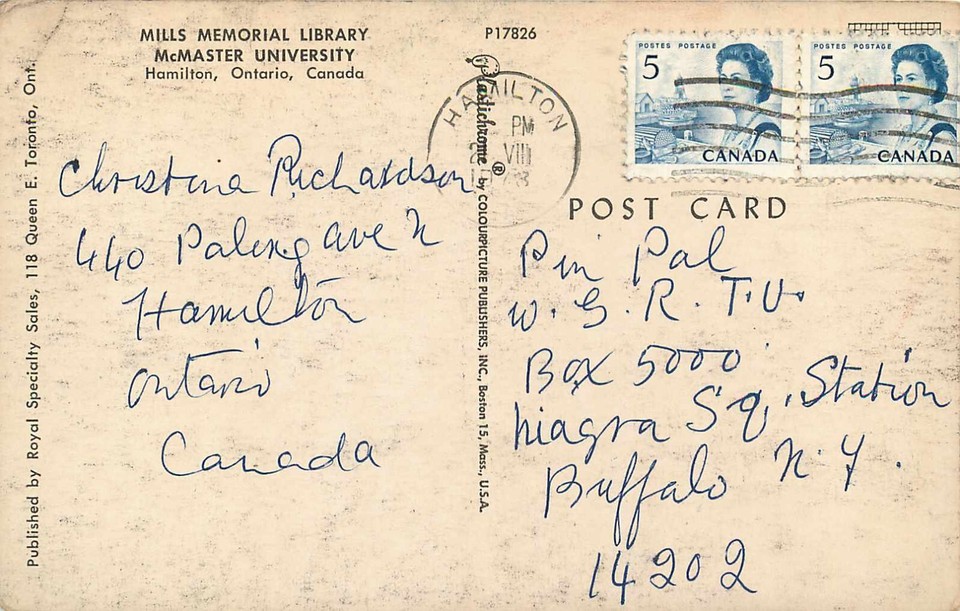 MILLS MEMORIAL LIBRARY
McMASTER UNIVERSITY
Hamilton, Ontario, Canada
P17826
POSTES POSTAGE
5
CANADA
POSTES POSTAGE
5
CANADA
HAMILTON
PM
VIII
POST CARD
Published by Royal Specialty Sales, 118 Queen E. Toronto, Ont.
Plastichrome® by COLOURPICTURE PUBLISHERS, INC., Boston 15, Mass., U.S.A.
Christina Richardson
440 Paling ave N
Hamilton
Ontario
Canada
Pin Pal
W. G. R. T.V.
Box 5000
Niagra Sq. Station
Buffalo N.Y.
14202